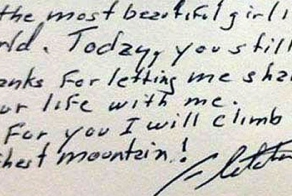 the most beautiful girl i
rld. Today, you still
anks for letting me sha
ur life with me.
For you I will climb
hest mountain!